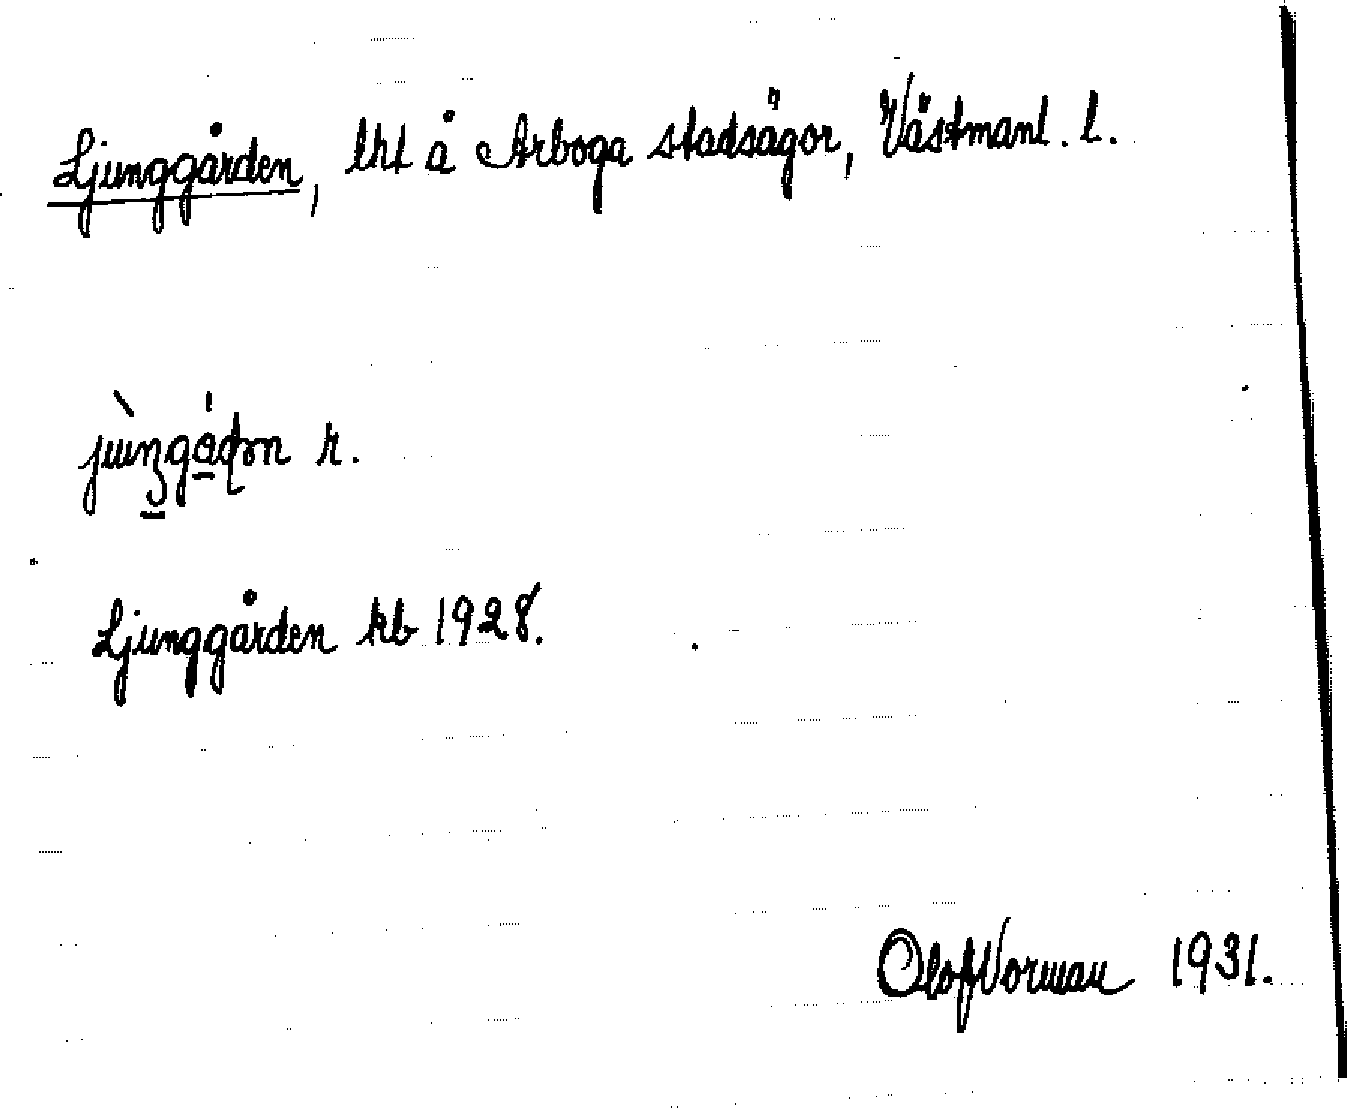 Ljunggården, lht å Arboga stadsägor, Västmanl. l.
r.
Ljunggården kb 1928.
Olof Vorman 1931.